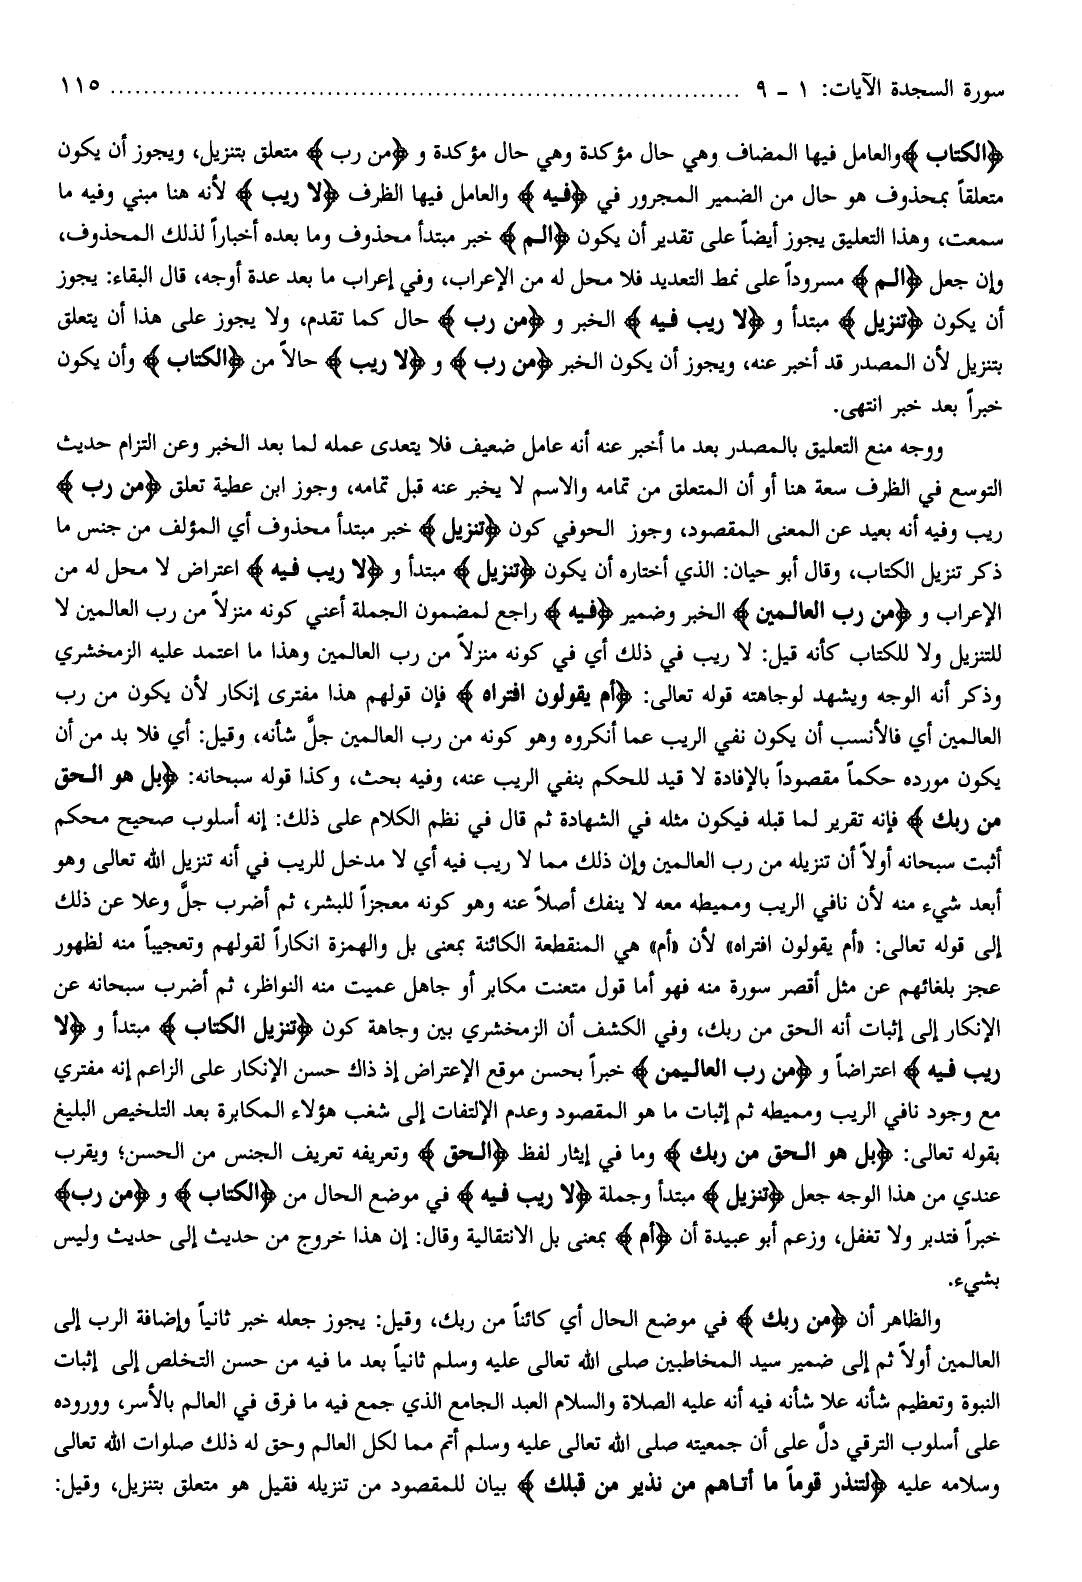 سورة السجدة الآيات: ١ - ٩ ........................................................................ ١١٥
﴿الكتاب﴾ والعامل فيها المضاف وهي حال مؤكدة وهي حال مؤكدة و ﴿من رب﴾ متعلق بتنزيل، ويجوز أن يكون
متعلقاً بمحذوف هو حال من الضمير المجرور في ﴿فيه﴾ والعامل فيها الظرف ﴿لا ريب﴾ لأنه هنا مبني وفيه ما
سمعت، وهذا التعليق يجوز أيضاً على تقدير أن يكون ﴿الم﴾ خبر مبتدأ محذوف وما بعده أخباراً لذلك المحذوف،
وإن جعل ﴿الم﴾ مسروداً على نمط التعديد فلا محل له من الإعراب، وفي إعراب ما بعد عدة أوجه، قال البقاء: يجوز
أن يكون ﴿تنزيل﴾ مبتدأ و ﴿لا ريب فيه﴾ الخبر و ﴿من رب﴾ حال كما تقدم، ولا يجوز على هذا أن يتعلق
بتنزيل لأن المصدر قد أخبر عنه، ويجوز أن يكون الخبر ﴿من رب﴾ و ﴿لا ريب﴾ حالاً من ﴿الكتاب﴾ وأن يكون
خبراً بعد خبر انتهى.
ووجه منع التعليق بالمصدر بعد ما أخبر عنه أنه عامل ضعيف فلا يتعدى عمله لما بعد الخبر وعن التزام حديث
التوسع في الظرف سعة هنا أو أن المتعلق من تمامه والاسم لا يخبر عنه قبل تمامه، وجوز ابن عطية تعلق ﴿من رب﴾
ريب وفيه أنه بعيد عن المعنى المقصود، وجوز الحوفي كون ﴿تنزيل﴾ خبر مبتدأ محذوف أي المؤلف من جنس ما
ذكر تنزيل الكتاب، وقال أبو حيان: الذي أختاره أن يكون ﴿تنزيل﴾ مبتدأ و ﴿لا ريب فيه﴾ اعتراض لا محل له من
الإعراب و ﴿من رب العالمين﴾ الخبر وضمير ﴿فيه﴾ راجع لمضمون الجملة أعني كونه منزلاً من رب العالمين لا
للتنزيل ولا للكتاب كأنه قيل: لا ريب في ذلك أي في كونه منزلاً من رب العالمين وهذا ما اعتمد عليه الزمخشري
وذكر أنه الوجه ويشهد لوجاهته قوله تعالى: ﴿أم يقولون افتراه﴾ فإن قولهم هذا مفترى إنكار لأن يكون من رب
العالمين أي فالأنسب أن يكون نفي الريب عما أنكروه وهو كونه من رب العالمين جلَّ شأنه، وقيل: أي فلا بد من أن
يكون مورده حكماً مقصوداً بالإفادة لا قيد للحكم بنفي الريب عنه، وفيه بحث، وكذا قوله سبحانه: ﴿بل هو الحق
من ربك﴾ فإنه تقرير لما قبله فيكون مثله في الشهادة ثم قال في نظم الكلام على ذلك: إنه أسلوب صحيح محكم
أثبت سبحانه أولاً أن تنزيله من رب العالمين وإن ذلك مما لا ريب فيه أي لا مدخل للريب في أنه تنزيل الله تعالى وهو
أبعد شيء منه لأن نافي الريب ومميطه معه لا ينفك أصلاً عنه وهو كونه معجزاً للبشر، ثم أضرب جلَّ وعلا عن ذلك
إلى قوله تعالى: «أم يقولون افتراه» لأن «أم» هي المنقطعة الكائنة بمعنى بل والهمزة انكاراً لقولهم وتعجيباً منه لظهور
عجز بلغائهم عن مثل أقصر سورة منه فهو أما قول متعنت مكابر أو جاهل عميت منه النواظر، ثم أضرب سبحانه عن
الإنكار إلى إثبات أنه الحق من ربك، وفي الكشف أن الزمخشري بين وجاهة كون ﴿تنزيل الكتاب﴾ مبتدأ و ﴿لا
ريب فيه﴾ اعتراضاً و ﴿من رب العاليمن﴾ خبراً بحسن موقع الإعتراض إذ ذاك حسن الإنكار على الزاعم إنه مفتري
مع وجود نافي الريب ومميطه ثم إثبات ما هو المقصود وعدم الإلتفات إلى شغب هؤلاء المكابرة بعد التلخيص البليغ
بقوله تعالى: ﴿بل هو الحق من ربك﴾ وما في إيثار لفظ ﴿الحق﴾ وتعريفه تعريف الجنس من الحسن؛ ويقرب
عندي من هذا الوجه جعل ﴿تنزيل﴾ مبتدأ وجملة ﴿لا ريب فيه﴾ في موضع الحال من ﴿الكتاب﴾ و ﴿من رب﴾
خبراً فتدبر ولا تغفل، وزعم أبو عبيدة أن ﴿أم﴾ بمعنى بل الانتقالية وقال: إن هذا خروج من حديث إلى حديث وليس
بشيء.
والظاهر أن ﴿من ربك﴾ في موضع الحال أي كائناً من ربك، وقيل: يجوز جعله خبر ثانياً وإضافة الرب إلى
العالمين أولاً ثم إلى ضمير سيد المخاطبين صلى الله تعالى عليه وسلم ثانياً بعد ما فيه من حسن التخلص إلى إثبات
النبوة وتعظيم شأنه علا شأنه فيه أنه عليه الصلاة والسلام العبد الجامع الذي جمع فيه ما فرق في العالم بالأسر، ووروده
على أسلوب الترقي دلَّ على أن جمعيته صلى الله تعالى عليه وسلم أتم مما لكل العالم وحق له ذلك صلوات الله تعالى
وسلامه عليه ﴿لتنذر قوماً ما أتاهم من نذير من قبلك﴾ بيان للمقصود من تنزيله فقيل هو متعلق بتنزيل، وقيل: